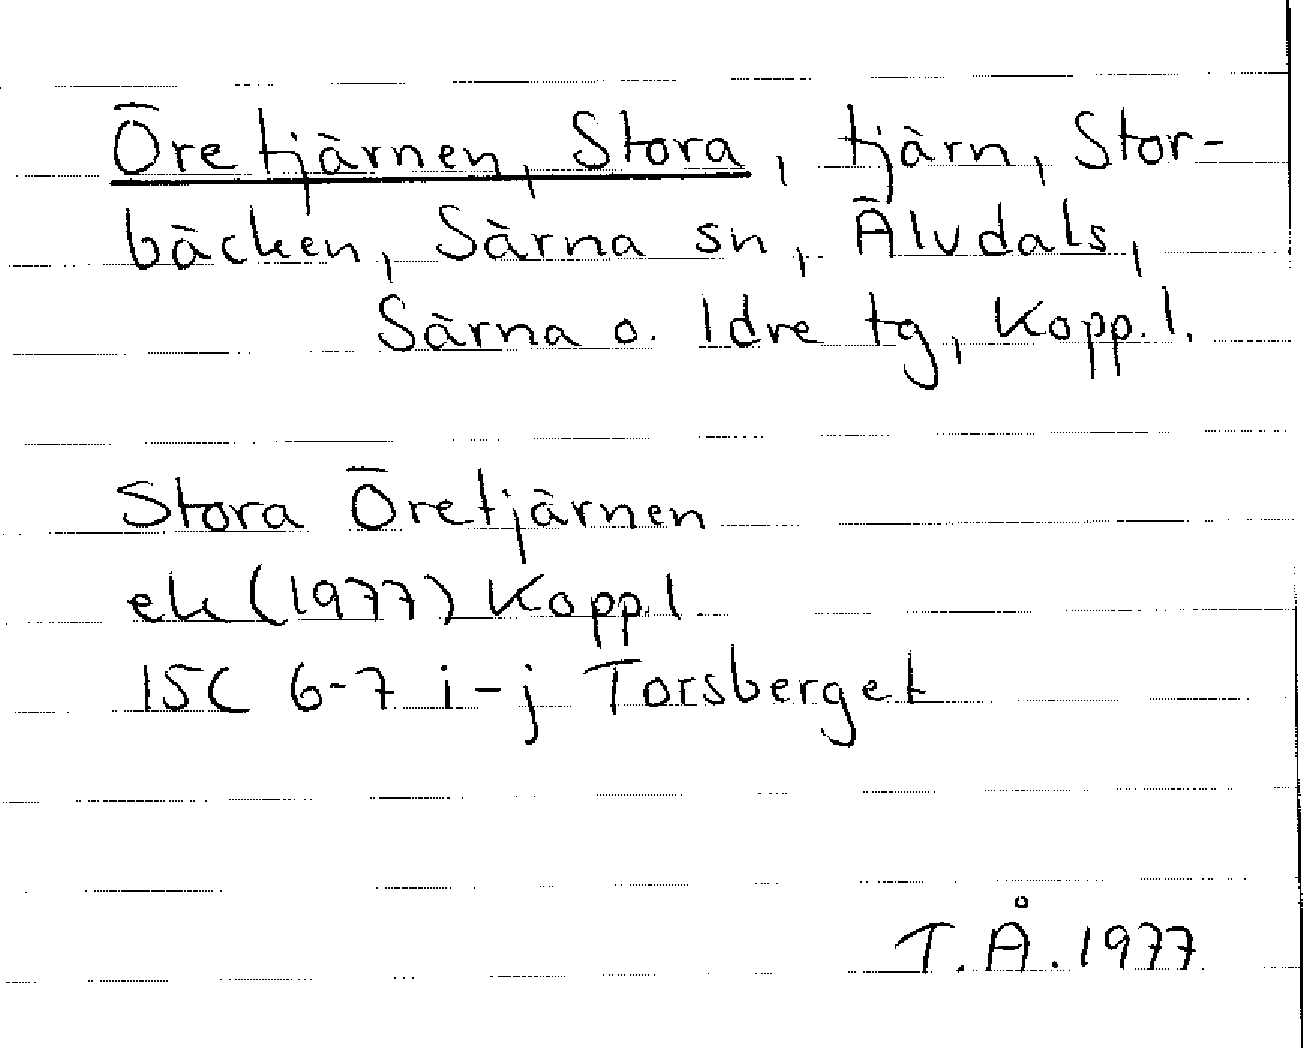 Öretjärnen, Stora, tjärn, Stor-
bäcken, Särna sn, Älvdals,
Särna o. Idre tg, Kopp. l.
Stora Öretjärnen
ek (1977) Kopp. l
15C 6-7 i-j Torsberget
T.Å. 1977